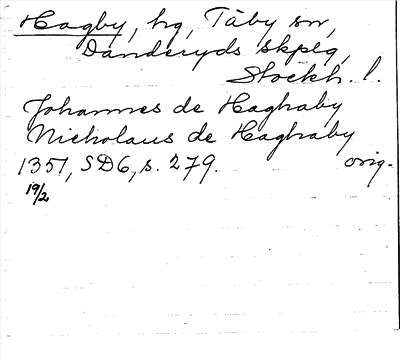 Hagby, hg, Täby sn,
Danderyds skplg,
Stockh. l.
Johannes de Haghaby
Nicholaus de Haghaby
1351, SD6, s. 279. orig.
19/2